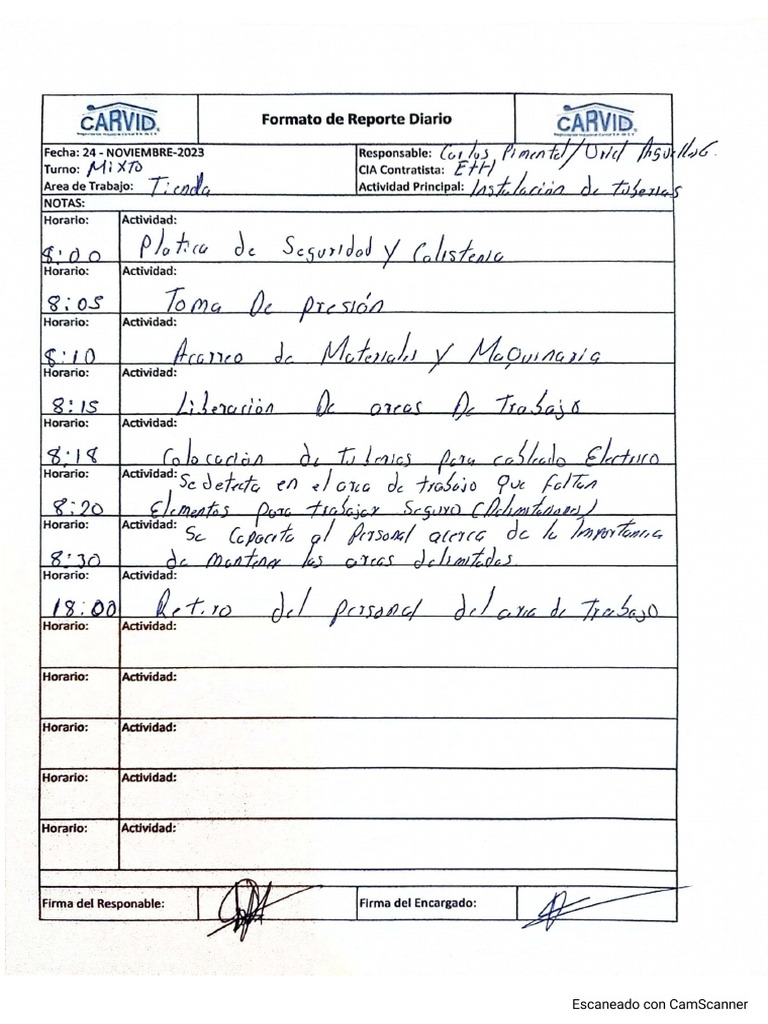 CARVID
Formato de Reporte Diario
CARVID
Fecha: 24 - NOVIEMBRE-2023
Responsable: Carlos Pimentel/Uriel
Turno: MIXTO
CIA Contratista: EHH
Area de Trabajo: Tienda
Actividad Principal: Instalación de tuberias
NOTAS:
Horario: Actividad:
8:00 Platica de Seguridad y Calistenia
Horario: Actividad:
8:05 Toma De presión
Horario: Actividad:
8:10 Acarreo de Materiales y Maquinaria
Horario: Actividad:
8:15 Liberación De areas De Trabajo
Horario: Actividad:
8:18 Colocación de Tuberias para cableado Electrico
Horario: Actividad: Se detecta en el area de trabajo que faltan
8:20 Elementos para trabajar Seguro
Horario: Actividad: Se Capacita al Personal acerca de la Importancia
8:30 de mantener las areas delimitadas.
Horario: Actividad:
18:00 Retiro del personal del area de Trabajo
Horario: Actividad:
Horario: Actividad:
Horario: Actividad:
Horario: Actividad:
Horario: Actividad:
Firma del Responable:
Firma del Encargado:
Escaneado con CamScanner